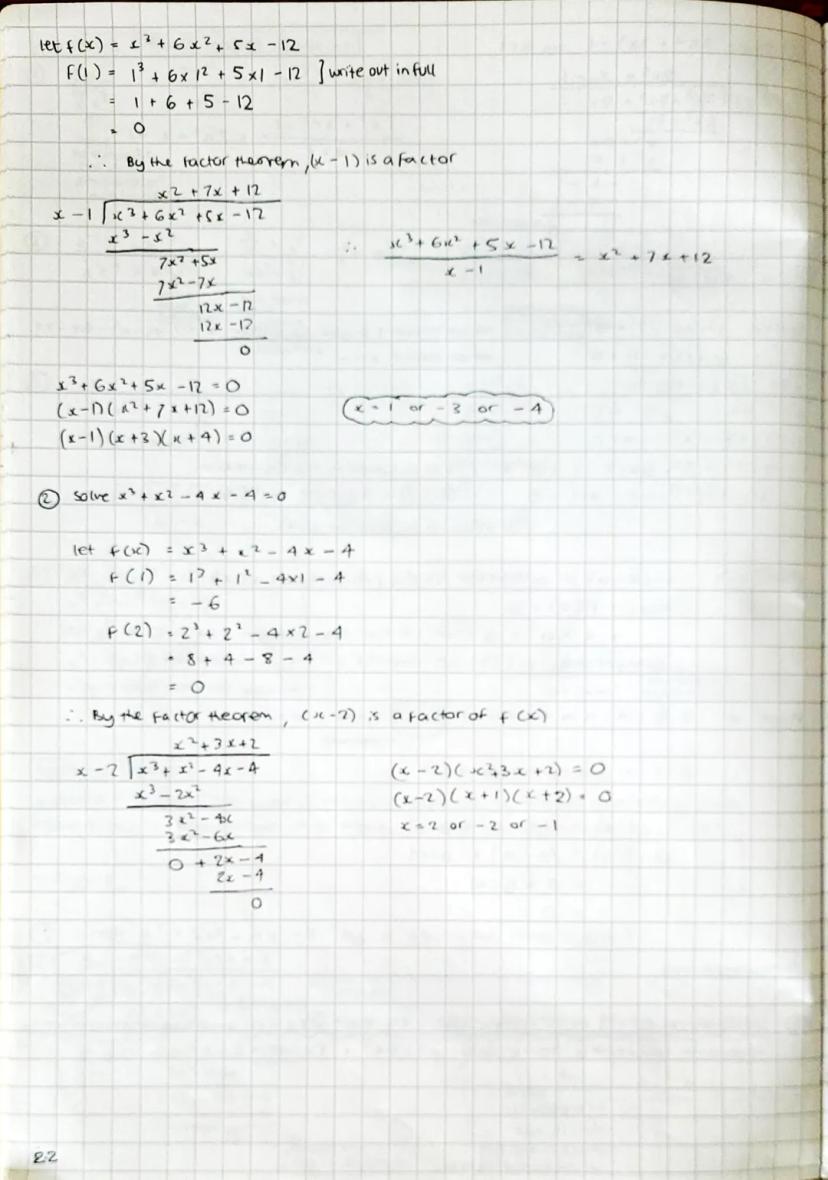 let f(x) = x³ + 6x² + 5x - 12
F(1) = 1³ + 6 x 1² + 5 x 1 - 12 } write out in full
= 1 + 6 + 5 - 12
= 0
∴ By the factor theorem, (x - 1) is a factor
x2 + 7x + 12
x - 1 | x³ + 6x² + 5x - 12
x³ - x²
7x² + 5x
7x² - 7x
12x - 12
12x - 12
0
∴ x³ + 6x² + 5x - 12 / x - 1 = x² + 7x + 12
x³ + 6x² + 5x - 12 = 0
(x-1)(x² + 7x + 12) = 0
(x-1)(x+3)(x+4) = 0
x = 1 or -3 or -4
② Solve x³ + x² - 4x - 4 = 0
let f(x) = x³ + x² - 4x - 4
F(1) = 1³ + 1² - 4x1 - 4
= -6
F(2) = 2³ + 2² - 4 x 2 - 4
= 8 + 4 - 8 - 4
= 0
∴ By the factor theorem, (x-2) is a factor of f(x)
x² + 3x + 2
x - 2 | x³ + x² - 4x - 4
x³ - 2x²
3x² - 4x
3x² - 6x
0 + 2x - 4
2x - 4
0
(x - 2)(x²+3x + 2) = 0
(x-2)(x+1)(x+2) = 0
x = 2 or -2 or -1
22